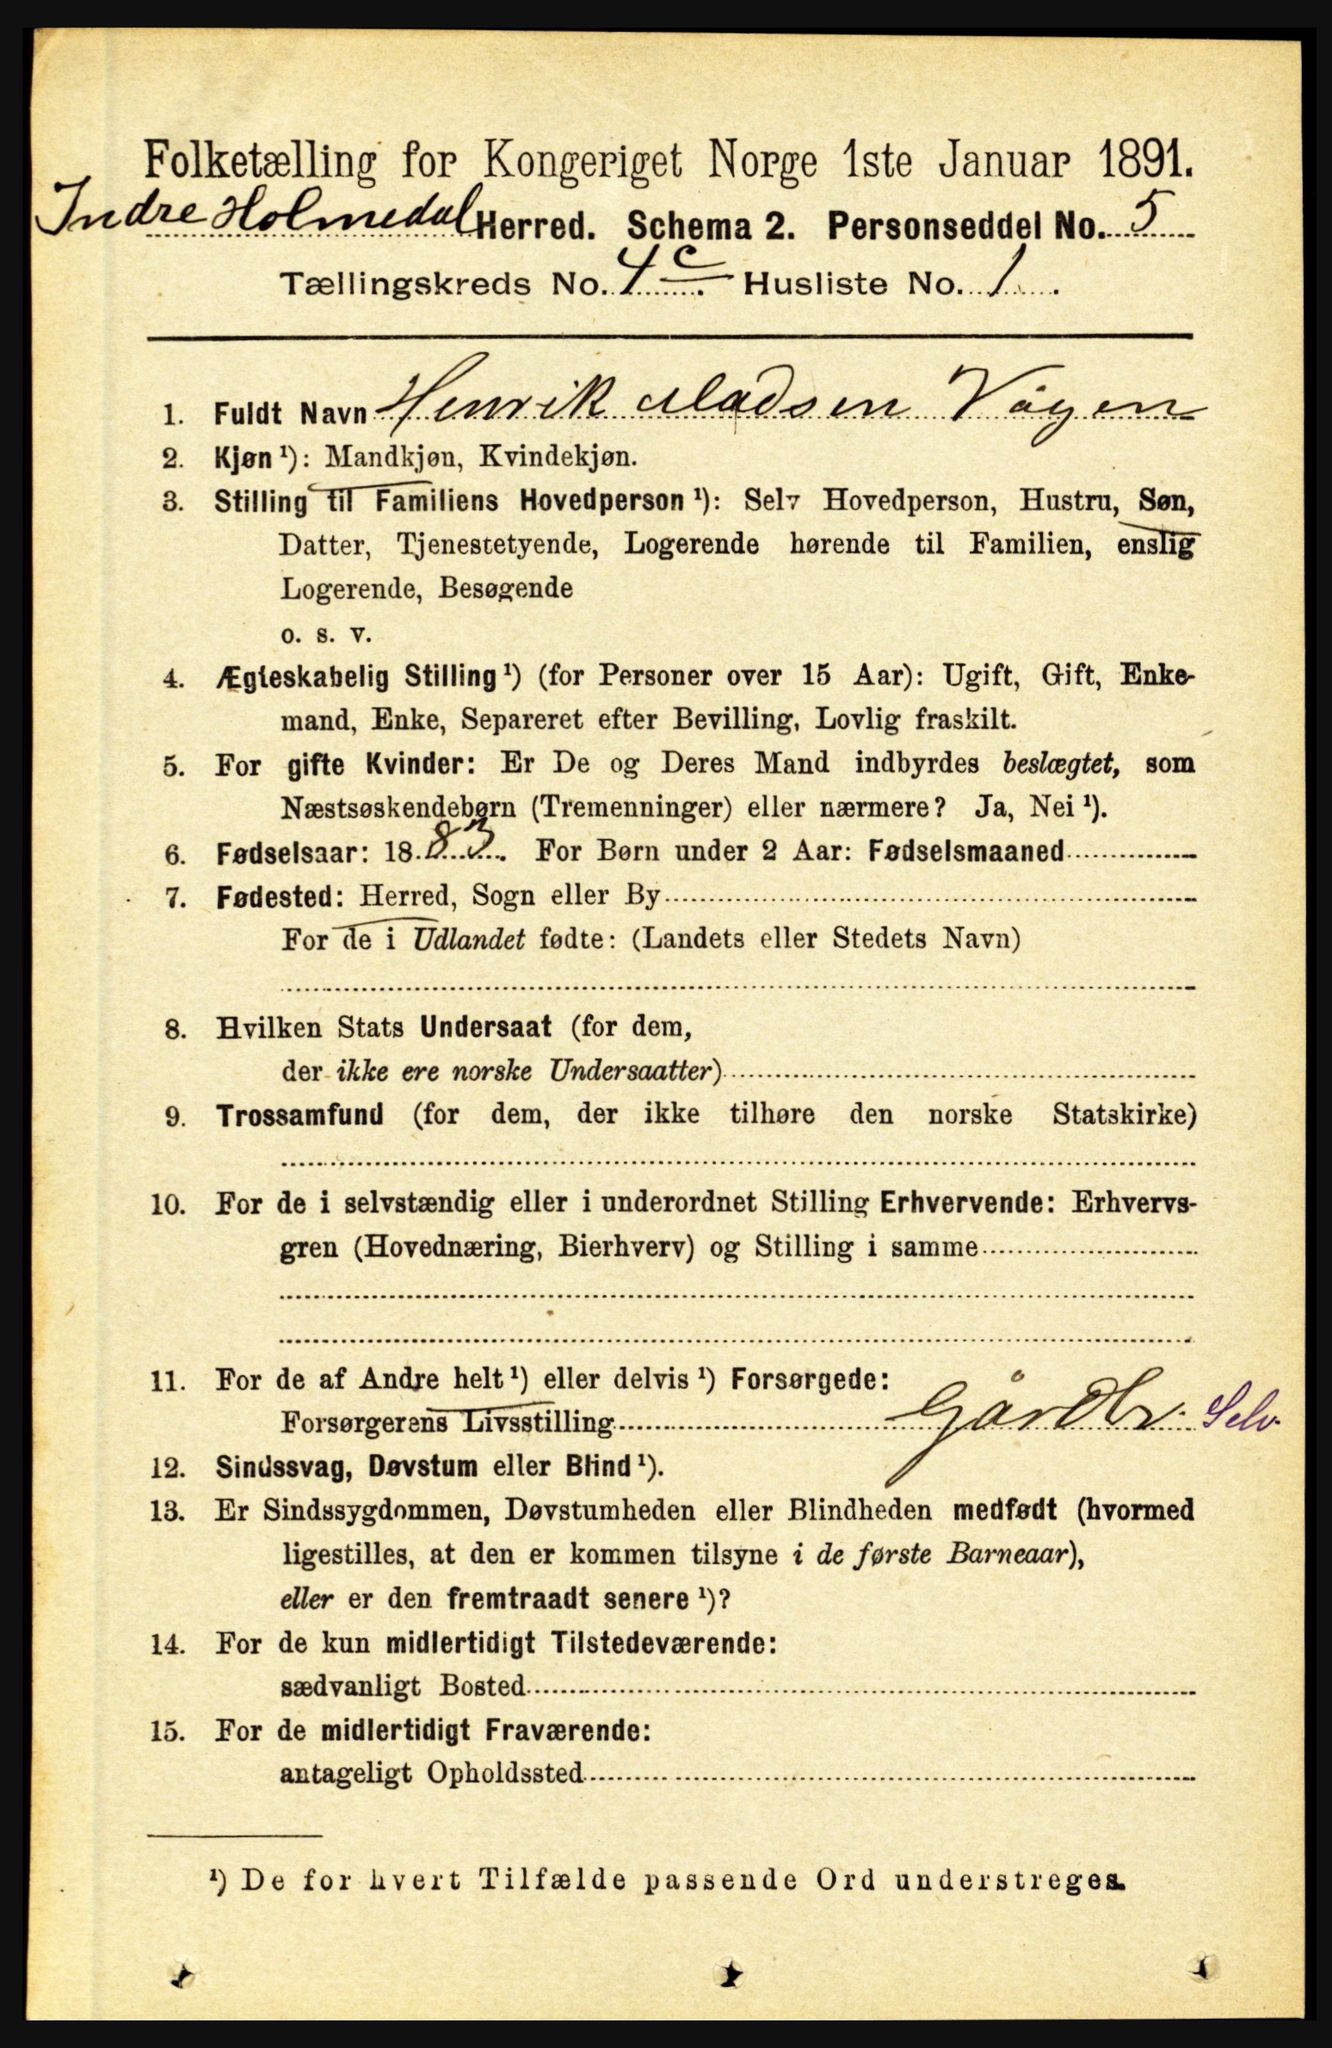 Folketælling for Kongeriget Norge 1ste Januar 1891.
Indre Holmedal Herred. Schema 2. Personseddel No. 5
Tællingskreds No. 4c. Husliste No. 1.
1. Fuldt Navn Henrik Madsen Vågen
2. Kjøn¹): Mandkjøn, Kvindekjøn.
3. Stilling til Familiens Hovedperson¹): Selv Hovedperson, Hustru, Søn,
Datter, Tjenestetyende, Logerende hørende til Familien, enslig
Logerende, Besøgende
o. s. v.
4. Ægteskabelig Stilling¹) (for Personer over 15 Aar): Ugift, Gift, Enke-
mand, Enke, Separeret efter Bevilling, Lovlig fraskilt.
5. For gifte Kvinder: Er De og Deres Mand indbyrdes beslægtet, som
Næstsøskendebørn (Tremenninger) eller nærmere? Ja, Nei¹).
6. Fødselsaar: 1883. For Børn under 2 Aar: Fødselsmaaned
7. Fødested: Herred, Sogn eller By
For de i Udlandet fødte: (Landets eller Stedets Navn)
8. Hvilken Stats Undersaat (for dem,
der ikke ere norske Undersaatter)
9. Trossamfund (for dem, der ikke tilhøre den norske Statskirke)
10. For de i selvstændig eller i underordnet Stilling Erhvervende: Erhvervs-
gren (Hovednæring, Bierhverv) og Stilling i samme
11. For de af Andre helt¹) eller delvis¹) Forsørgede:
Forsørgerens Livsstilling Gårdbr. Selv.
12. Sindssvag, Døvstum eller Blind¹).
13. Er Sindssygdommen, Døvstumheden eller Blindheden medfødt (hvormed
ligestilles, at den er kommen tilsyne i de første Barneaar),
eller er den fremtraadt senere¹)?
14. For de kun midlertidigt Tilstedeværende:
sædvanligt Bosted
15. For de midlertidigt Fraværende:
antageligt Opholdssted
¹) De for hvert Tilfælde passende Ord understreges.